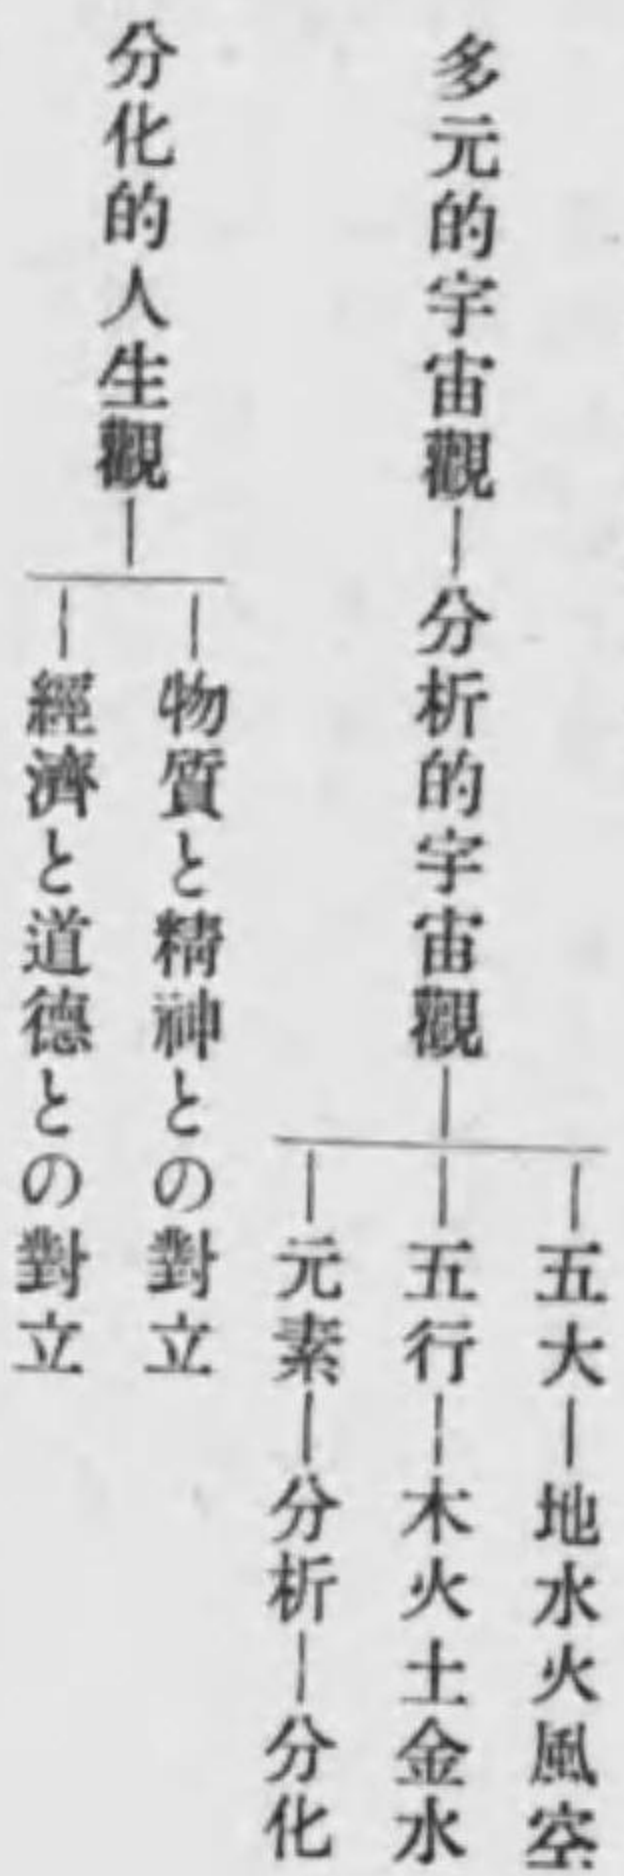 多元的宇宙觀―分析的宇宙觀―
―五大―地水火風空
―五行―木火土金水
―元素―分析―分化
分化的人生觀―
―物質と精神との對立
―經濟と道德との對立